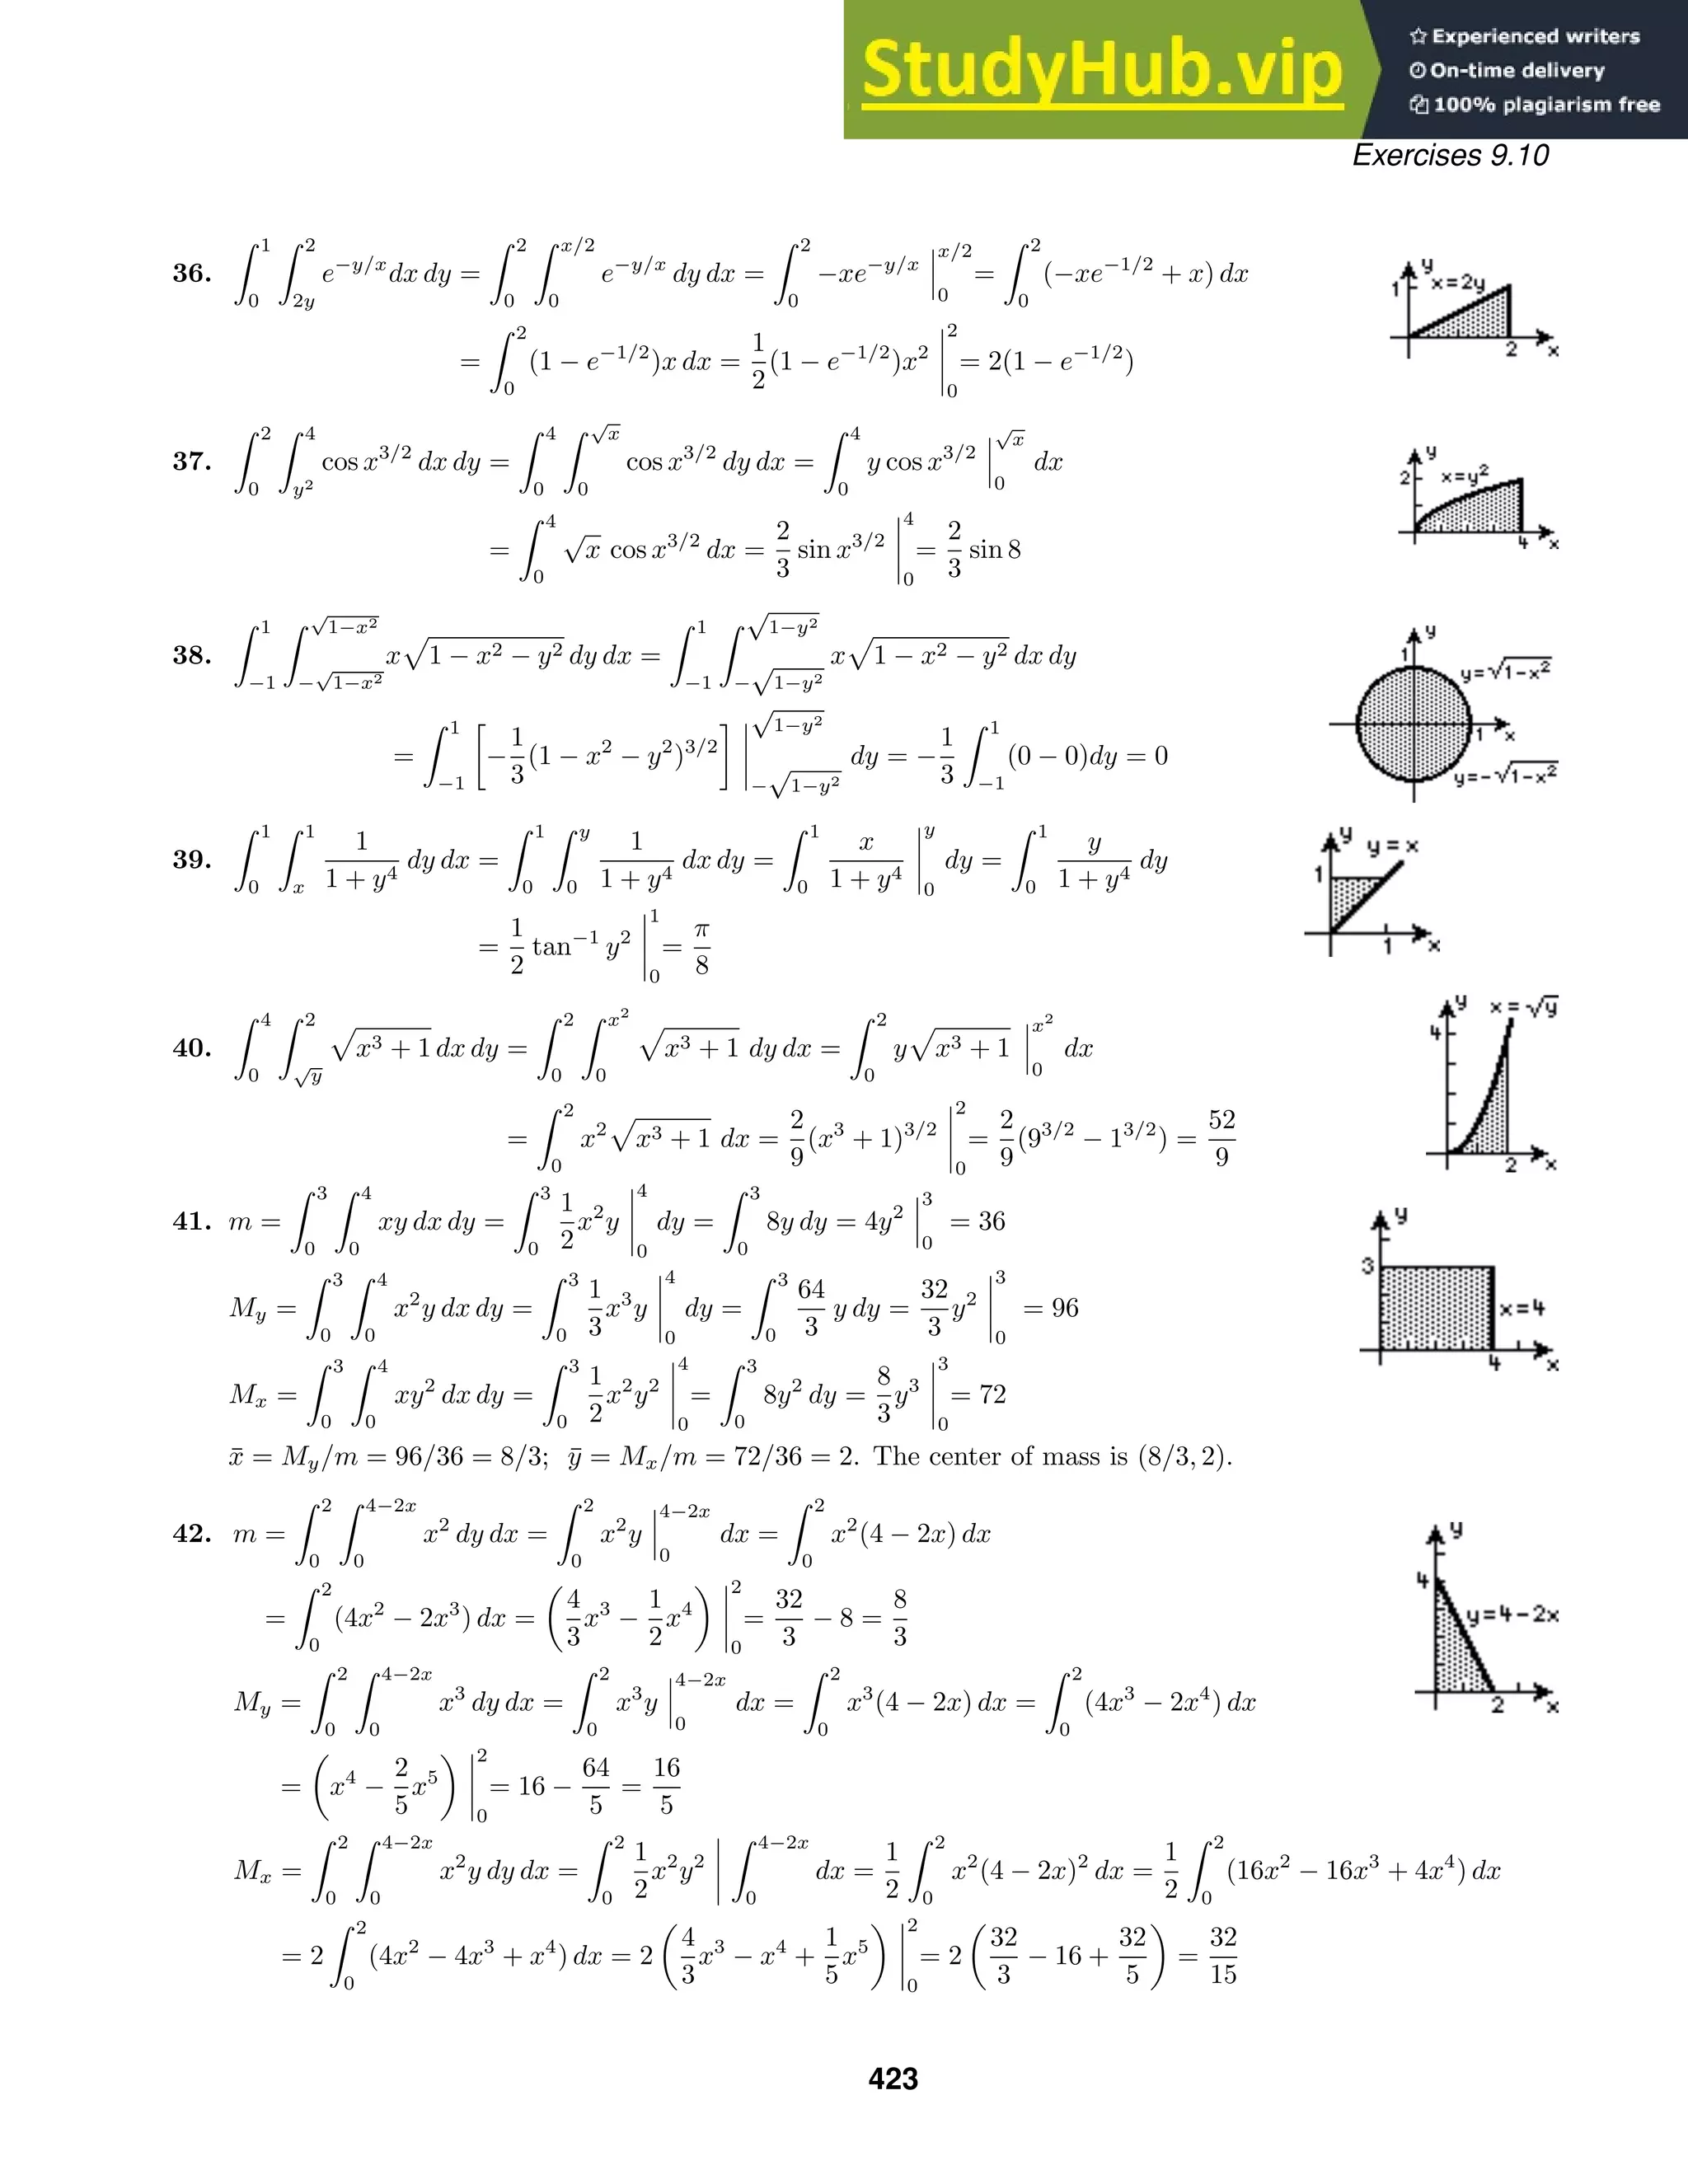 StudyHub.vip
Experienced writers
On-time delivery
100% plagiarism free
Exercises 9.10
36. ∫_0^1 ∫_{2y}^2 e^{−y/x} dx dy = ∫_0^2 ∫_0^{x/2} e^{−y/x} dy dx = ∫_0^2 −xe^{−y/x} |_0^{x/2} = ∫_0^2 (−xe^{−1/2} + x) dx
= ∫_0^2 (1 − e^{−1/2})x dx = 1/2 (1 − e^{−1/2})x² |_0^2 = 2(1 − e^{−1/2})
y
x=2y
1
2
x
37. ∫_0^2 ∫_{y²}^4 cos x^{3/2} dx dy = ∫_0^4 ∫_0^{√x} cos x^{3/2} dy dx = ∫_0^4 y cos x^{3/2} |_0^{√x} dx
= ∫_0^4 √x cos x^{3/2} dx = 2/3 sin x^{3/2} |_0^4 = 2/3 sin 8
y
2
x=y²
4
x
38. ∫_{−1}^1 ∫_{−√(1−x²)}^{√(1−x²)} x√(1 − x² − y²) dy dx = ∫_{−1}^1 ∫_{−√(1−y²)}^{√(1−y²)} x√(1 − x² − y²) dx dy
= ∫_{−1}^1 [−1/3 (1 − x² − y²)^{3/2}] |_{−√(1−y²)}^{√(1−y²)} dy = −1/3 ∫_{−1}^1 (0 − 0)dy = 0
y
1
y=√(1−x²)
1
x
y=−√(1−x²)
39. ∫_0^1 ∫_x^1 1/(1 + y⁴) dy dx = ∫_0^1 ∫_0^y 1/(1 + y⁴) dx dy = ∫_0^1 x/(1 + y⁴) |_0^y dy = ∫_0^1 y/(1 + y⁴) dy
= 1/2 tan^{−1} y² |_0^1 = π/8
y
y=x
1
1
x
40. ∫_0^4 ∫_{√y}^2 √(x³ + 1) dx dy = ∫_0^2 ∫_0^{x²} √(x³ + 1) dy dx = ∫_0^2 y√(x³ + 1) |_0^{x²} dx
= ∫_0^2 x²√(x³ + 1) dx = 2/9 (x³ + 1)^{3/2} |_0^2 = 2/9 (9^{3/2} − 1^{3/2}) = 52/9
y
x=√y
4
2
x
41. m = ∫_0^3 ∫_0^4 xy dx dy = ∫_0^3 1/2 x²y |_0^4 dy = ∫_0^3 8y dy = 4y² |_0^3 = 36
M_y = ∫_0^3 ∫_0^4 x²y dx dy = ∫_0^3 1/3 x³y |_0^4 dy = ∫_0^3 64/3 y dy = 32/3 y² |_0^3 = 96
M_x = ∫_0^3 ∫_0^4 xy² dx dy = ∫_0^3 1/2 x²y² |_0^4 = ∫_0^3 8y² dy = 8/3 y³ |_0^3 = 72
x̄ = M_y/m = 96/36 = 8/3; ȳ = M_x/m = 72/36 = 2. The center of mass is (8/3, 2).
y
3
x=4
4
x
42. m = ∫_0^2 ∫_0^{4−2x} x² dy dx = ∫_0^2 x²y |_0^{4−2x} dx = ∫_0^2 x²(4 − 2x) dx
= ∫_0^2 (4x² − 2x³) dx = (4/3 x³ − 1/2 x⁴) |_0^2 = 32/3 − 8 = 8/3
M_y = ∫_0^2 ∫_0^{4−2x} x³ dy dx = ∫_0^2 x³y |_0^{4−2x} dx = ∫_0^2 x³(4 − 2x) dx = ∫_0^2 (4x³ − 2x⁴) dx
= (x⁴ − 2/5 x⁵) |_0^2 = 16 − 64/5 = 16/5
M_x = ∫_0^2 ∫_0^{4−2x} x²y dy dx = ∫_0^2 1/2 x²y² | ∫_0^{4−2x} dx = 1/2 ∫_0^2 x²(4 − 2x)² dx = 1/2 ∫_0^2 (16x² − 16x³ + 4x⁴) dx
= 2 ∫_0^2 (4x² − 4x³ + x⁴) dx = 2 (4/3 x³ − x⁴ + 1/5 x⁵) |_0^2 = 2 (32/3 − 16 + 32/5) = 32/15
y
4
y=4−2x
2
x
423